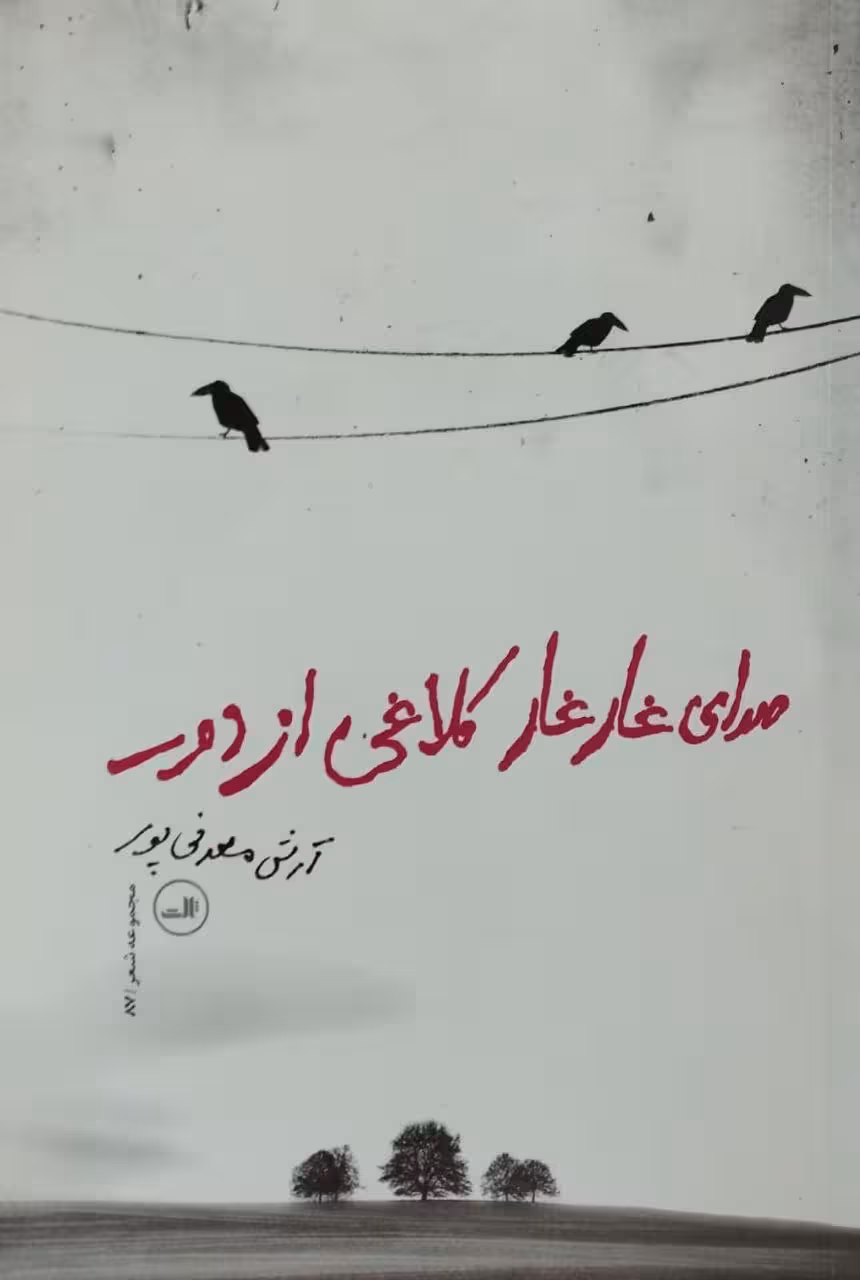 صدای غارغار کلاغی از دور
آرش معدنی‌پور
ثالث
مجموعه شعر / ۸۷